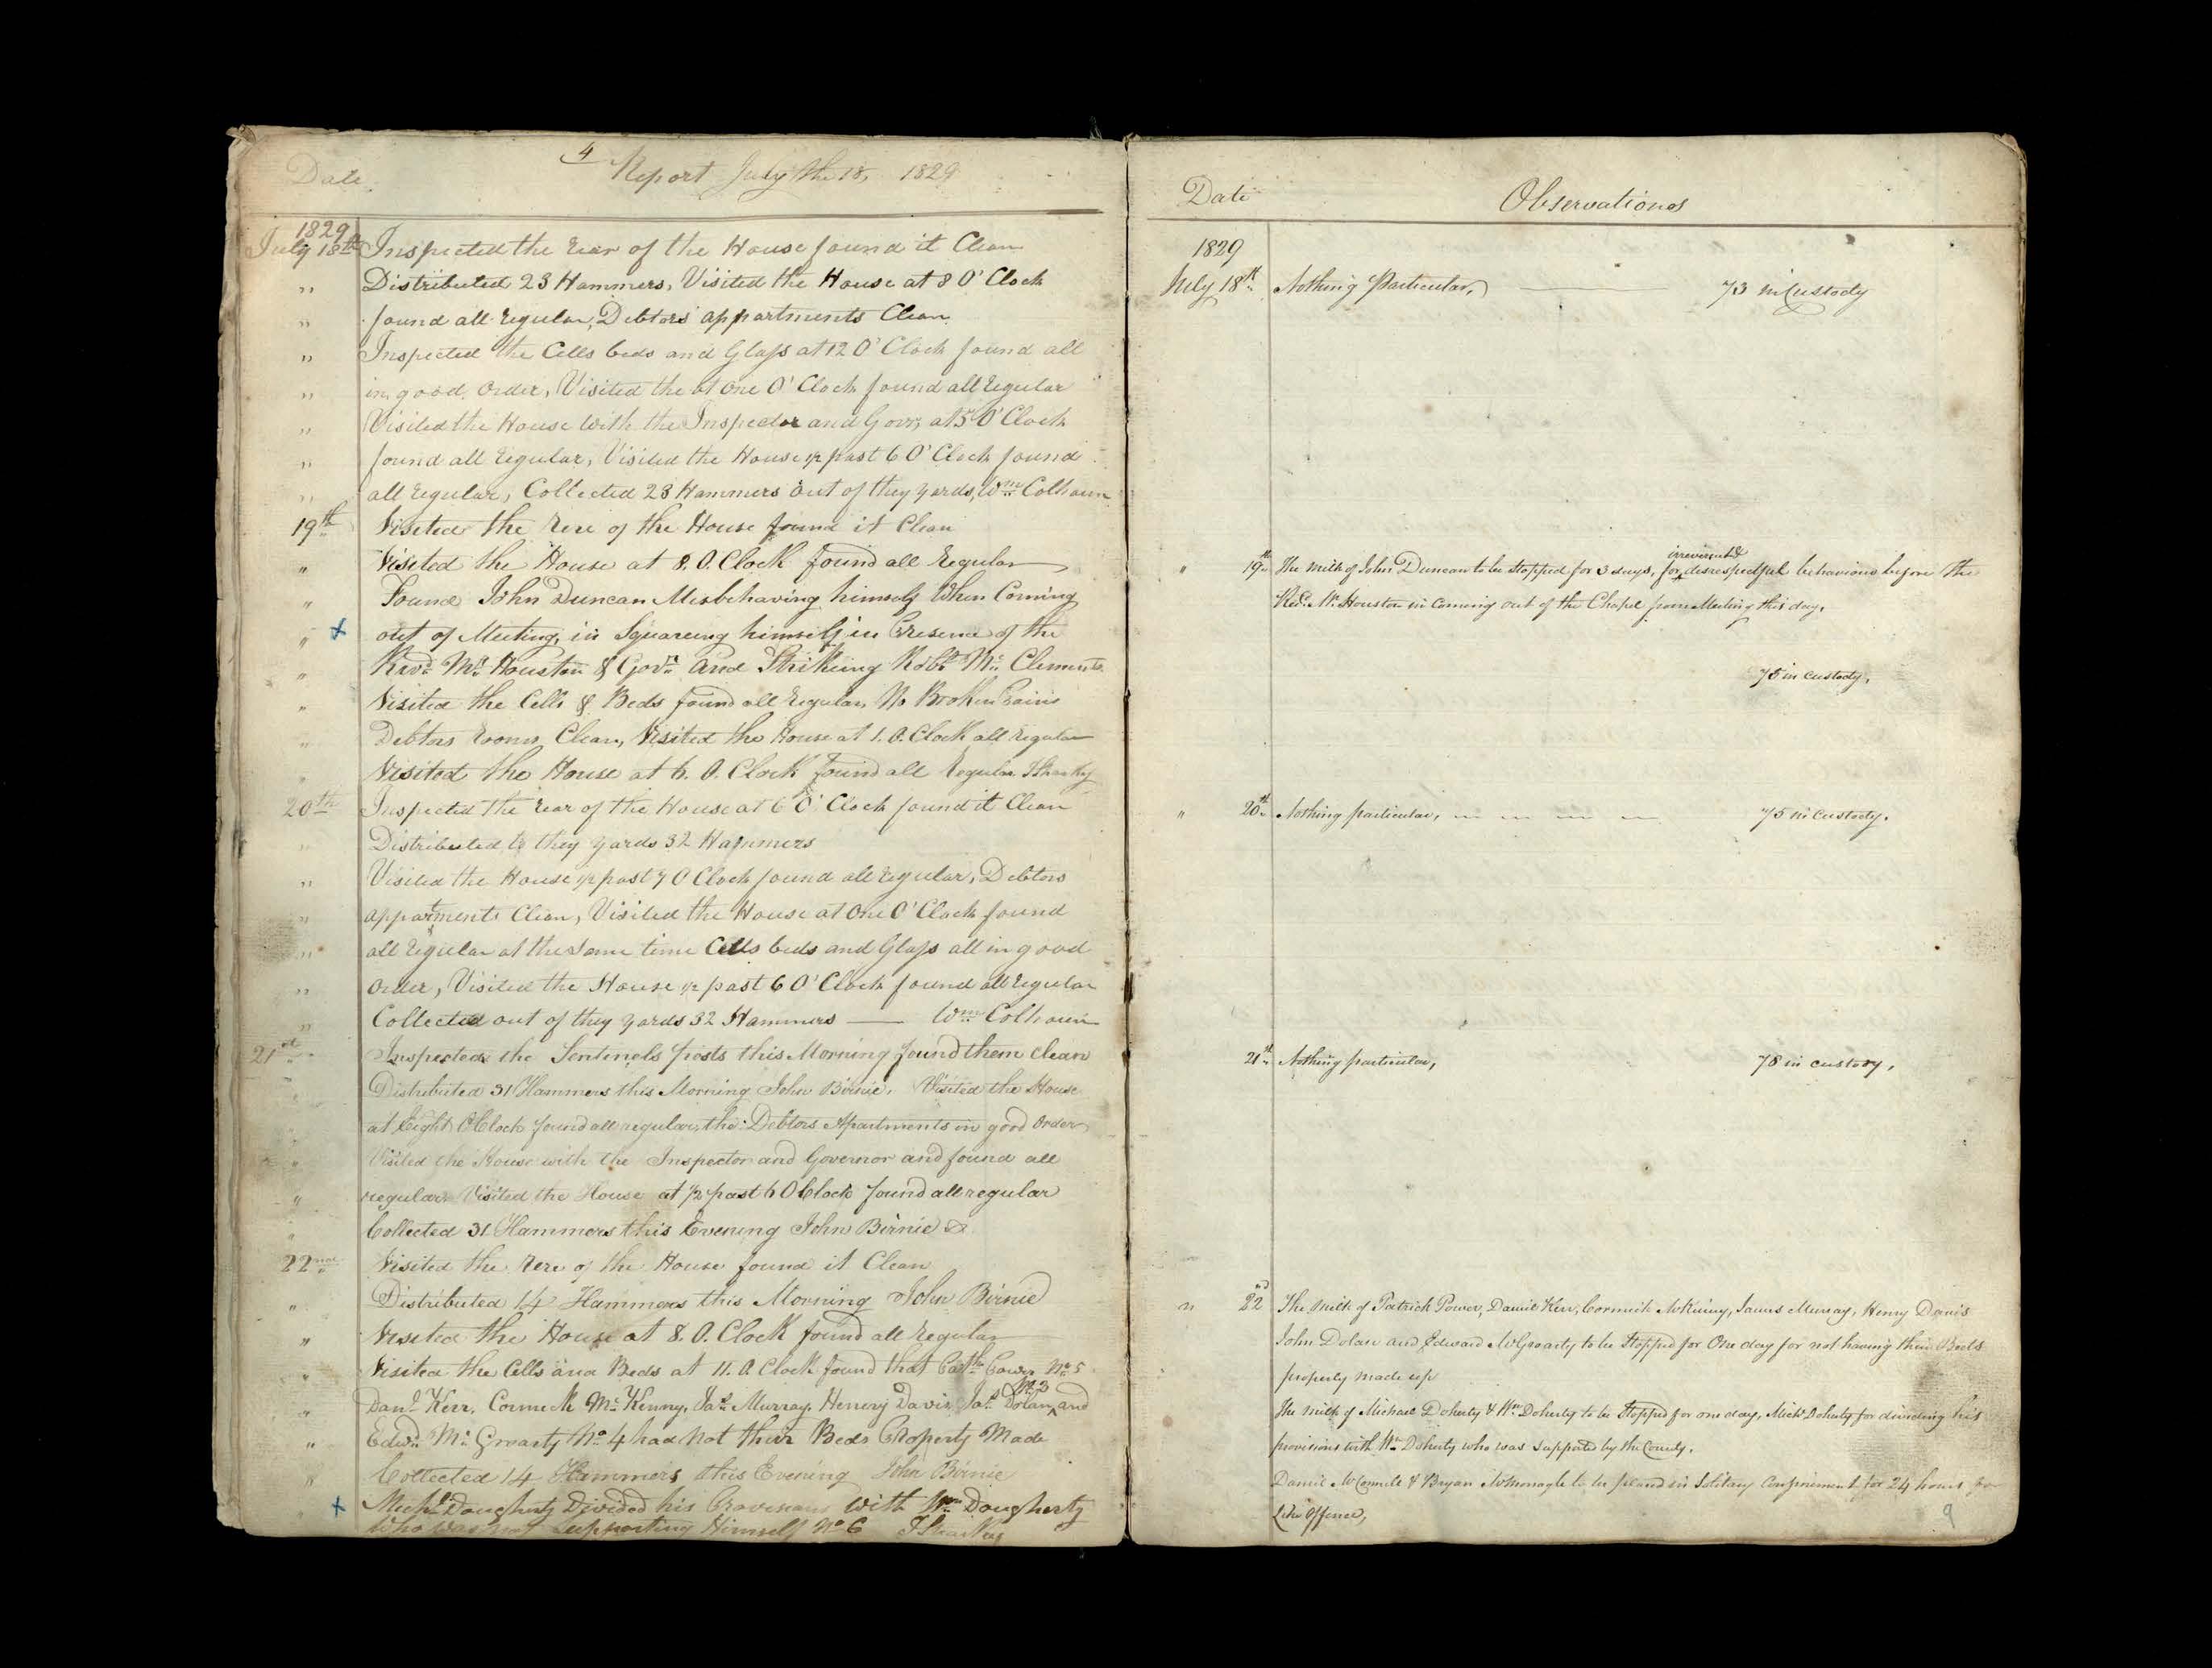 4
Date Report July the 18, 1829
1829
July 18th Inspected the rear of the House found it Clean
" Distributed 23 Hammers, Visited the House at 8 O'Clock
" found all regular, Debtors appartments Clean
" Inspected the Cells beds and Glass at 12 O'Clock found all
" in good order, Visited the at One O'Clock found all regular
" Visited the House with the Inspector and Govr, at 5 O'Clock
" found all regular, Visited the House 1/2 past 6 O'Clock found
" all regular, Collected 23 Hammers out of they yards, Wm Colhoun
19th Visited the Rere of the House found it Clean
" Visited the House at 8. O. Clock found all Regular
" Found John Duncan Misbehaving himself When Coming
" + out of Meeting, in Squareing himself in Presence of the
" Revd. Mr. Houston & Govr. and Strikeing Robt. Mc. Clements
" Visited the Cells & Beds found all Regular, No Broken
" Debtors Rooms Clean, Visited the House at 1. O. Clock all Regular
" Visited the House at 6. O. Clock found all Regular
20th Inspected the rear of the House at 6 O'Clock found it Clean
" Distributed to they yards 32 Hammers
" Visited the House 1/2 past 7 O Clock found all regular, Debtors
" appartments Clean, Visited the House at One O'Clock found
" all regular at the same time Cells beds and Glass all in good
" order, Visited the House 1/2 past 6 O'Clock found all regular
" Collected out of they yards 32 Hammers — Wm Colhoun
21st Inspected the Sentinels posts this Morning found them clean
" Distributed 31 Hammers this Morning John Birnie. Visited the House
" at Eight OClock found all regular, the Debtors Apartments in good order
" Visited the House with the Inspector and Governor and found all
" regular Visited the House at 1/2 past 6 OClock found all regular
" Collected 31 Hammers this Evening John Birnie
22nd Visited the Rere of the House found it Clean
" Distributed 14 Hammers this Morning John Birnie
" Visited the House at 8. O. Clock found all Regular
" Visited the Cells and Beds at 11. O. Clock found that No. 5
No. 3
" Danl. Kerr, Cormick Mc. Kenny, Jas. Murray, Henery Davis, Dolan, and
" Edwd. Mc. Groarty No. 4 had not their Beds Properly Made
" Collected 14 Hammers this Evening John Birnie
" + Michl. Dougherty Divided his Provisions with Wm Dougherty
Who was not Supporting Himself No 6
Date Observations
1829
July 18th. Nothing Particular, 73 in Custody
irreverent &
" 19th. The milk of John Duncan to be stopped for 3 days, for disrespectful behaviour before the
Revd. Mr. Houston in coming out of the Chapel from Meeting this day.
75 in custody.
" 20th. Nothing particular, 75 in custody.
21st. Nothing particular, 78 in custody.
" 22nd The milk of Patrick Power, Daniel Kerr, Cormick McKinny, James Murray, Henry Davis
John Dolan and Edward McGroarty to be Stopped for One day for not having their Beds
properly made up
The milk of Michael Doherty & Wm. Doherty to be Stopped for one day, Michl. Doherty for dividing his
provisions with Wm. Doherty who was supported by the County.
Daniel McConnell & Bryan McMonagle to be placed in Solitary Confinement for 24 hours for
Like Offence,
9